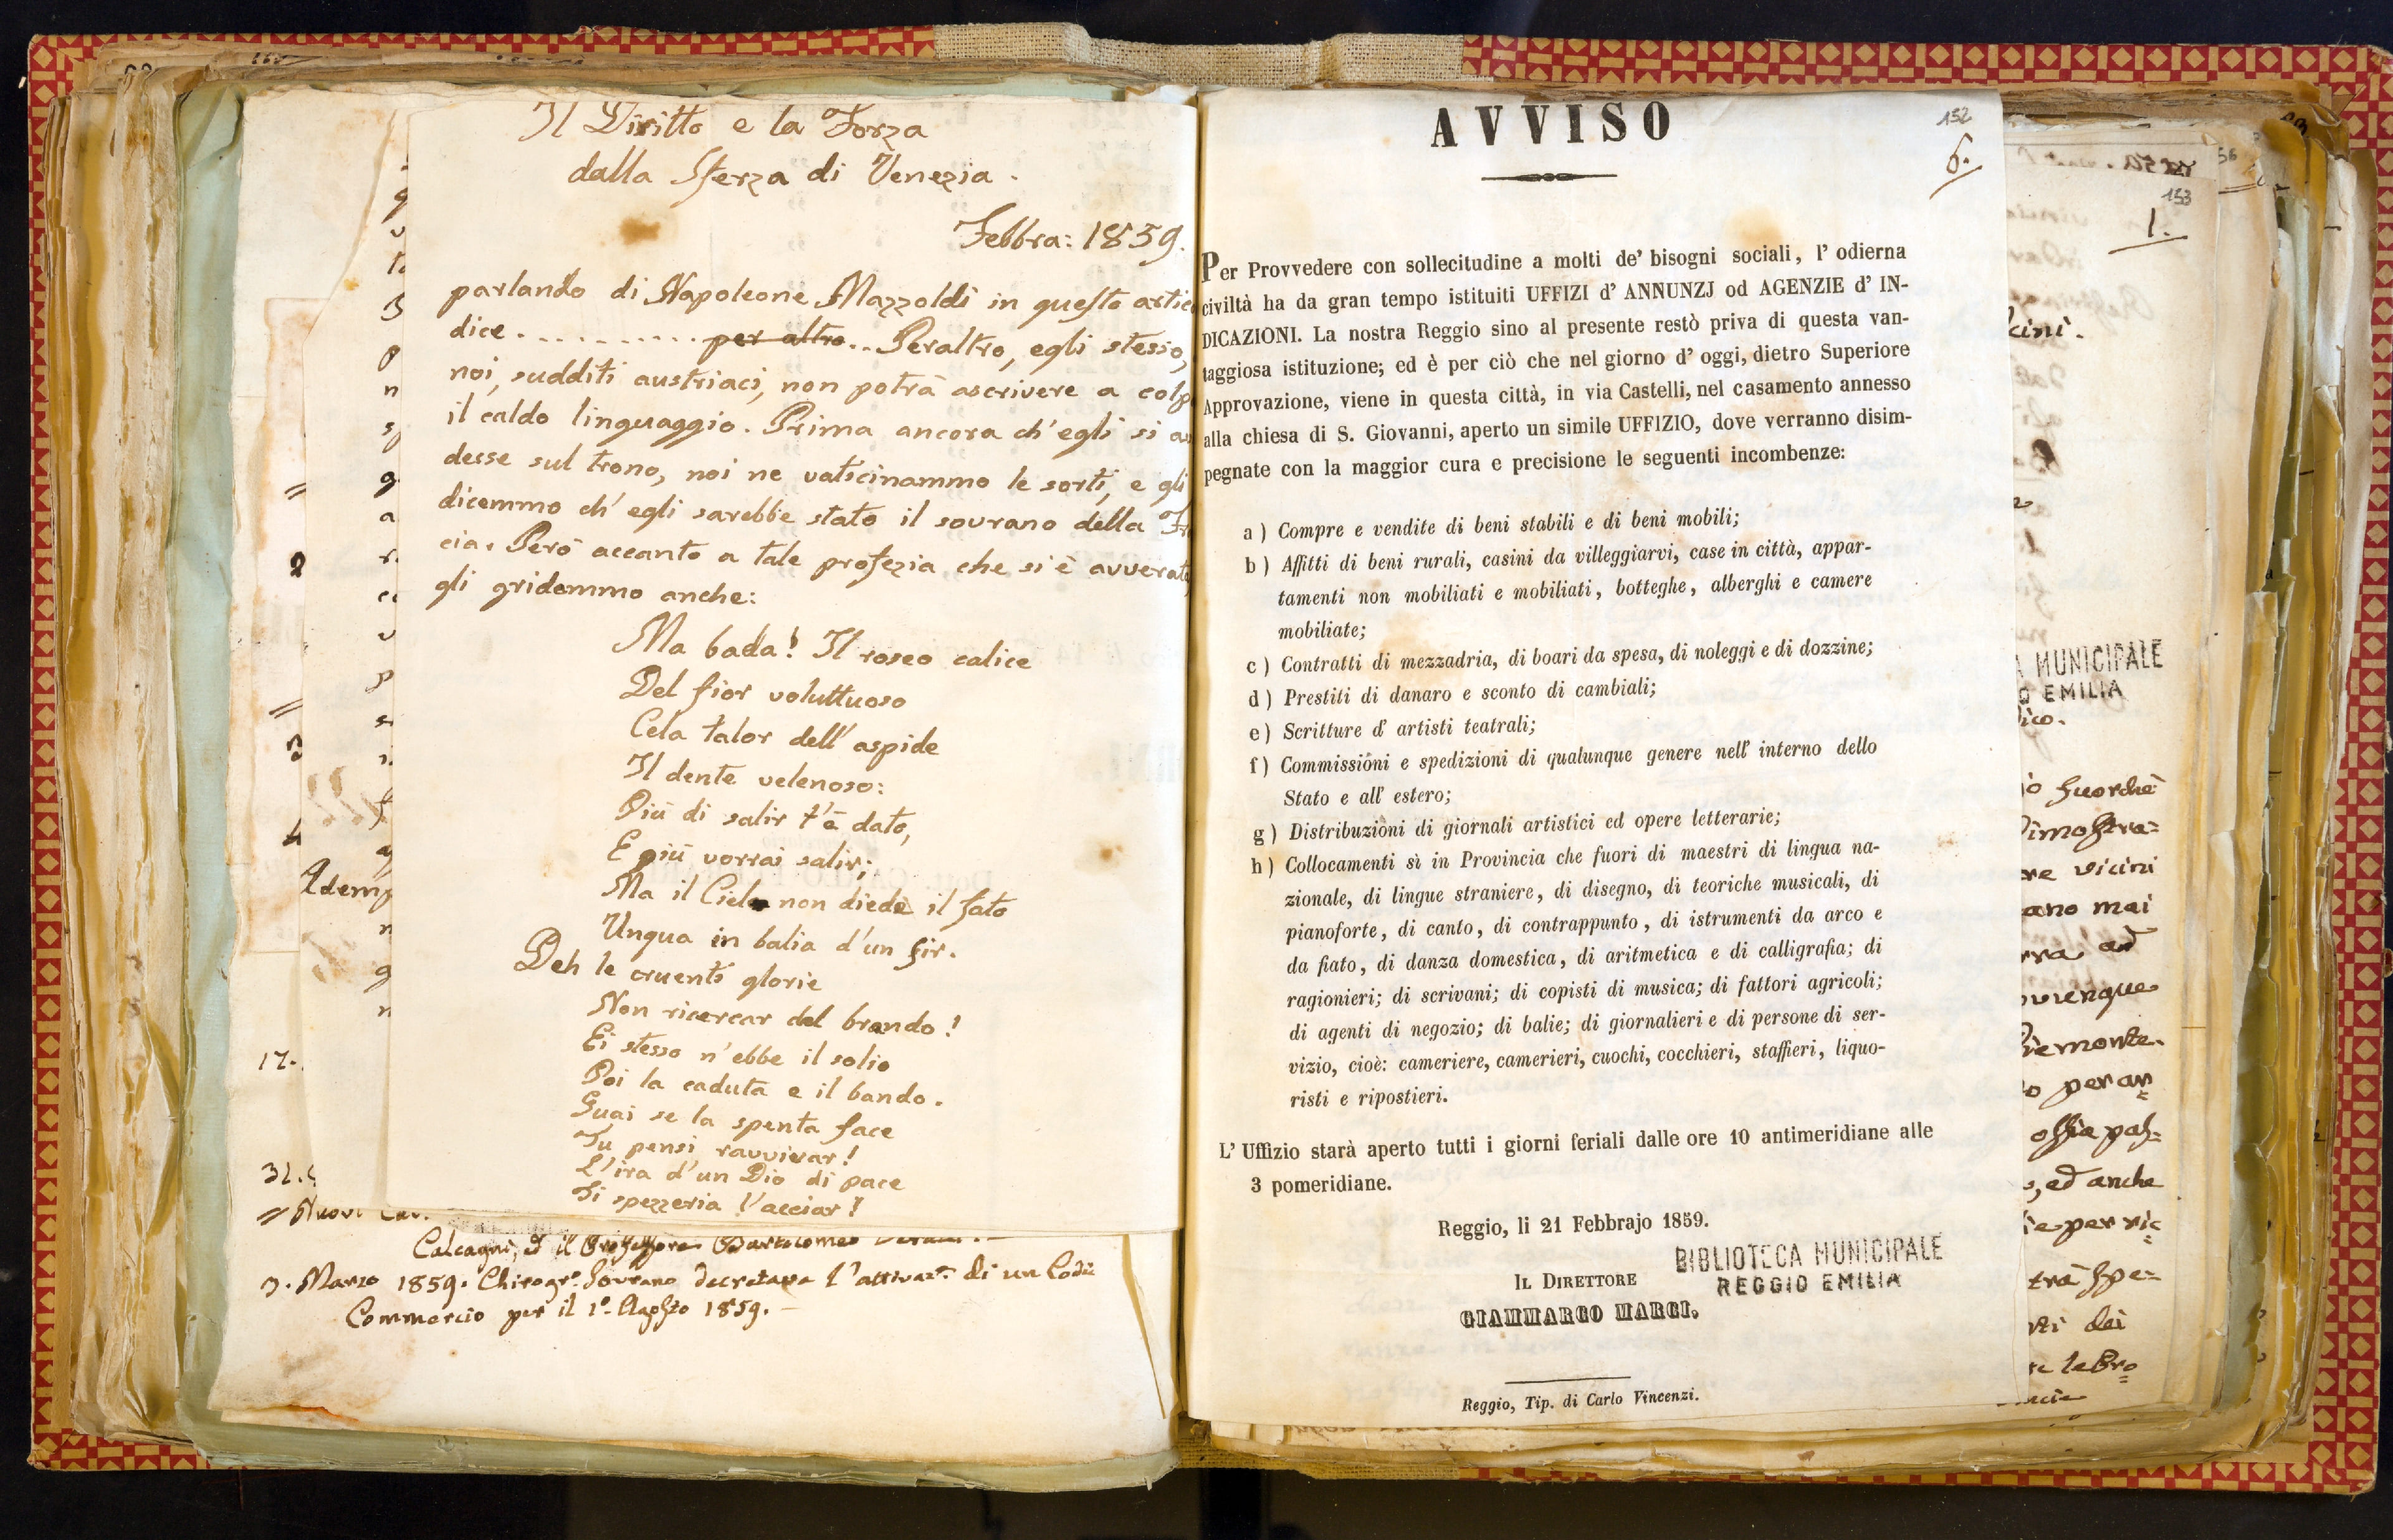 Il Diritto e la Forza
dalla Sferza di Venezia.
Febbra: 1859.
parlando di Napoleone Mazzoldi in questo artic
dice .......... per altro.. Peraltro, egli stesso,
noi, sudditi austriaci, non potrà ascrivere a colp
il caldo linguaggio. Prima ancora ch' egli si as
desse sul trono, noi ne vaticinammo le sorti, e gli
dicemmo ch' egli sarebbe stato il sovrano della Fr
cia. Però accanto a tale profezia, che si è avverat
gli gridammo anche:
Ma bada! Il roseo calice
Del fior voluttuoso
Cela talor dell' aspide
Il dente velenoso:
Più di salir t'è dato,
E più vorrai salir;
Ma il Cielo non diede il fato
Unqua in balia d'un sir.
Deh le cruenti glorie
Non ricercar del brando!
Ei stesso n' ebbe il solio
Poi la caduta e il bando.
Guai se la spenta face
Tu pensi ravvivar!
L'ira d'un Dio di pace
Ti spezzeria l'acciar!
2
3
4
Idem
17.
31.
= Nuovi
Calcagni, ed il Professore Bartolomeo
3. Marzo 1859. Chirogr.º Sovrano decretava l'attivaz.e di un Codi
Commercio per il 1º Agosto 1859. -
AVVISO
152
6.
Per Provvedere con sollecitudine a molti de' bisogni sociali, l' odierna
civiltà ha da gran tempo istituiti UFFIZI d' ANNUNZJ od AGENZIE d' IN-
DICAZIONI. La nostra Reggio sino al presente restò priva di questa van-
taggiosa istituzione; ed è per ciò che nel giorno d' oggi, dietro Superiore
Approvazione, viene in questa città, in via Castelli, nel casamento annesso
alla chiesa di S. Giovanni, aperto un simile UFFIZIO, dove verranno disim-
pegnate con la maggior cura e precisione le seguenti incombenze:
a ) Compre e vendite di beni stabili e di beni mobili;
b ) Affitti di beni rurali, casini da villeggiarvi, case in città, appar-
tamenti non mobiliati e mobiliati, botteghe, alberghi e camere
mobiliate;
c ) Contratti di mezzadria, di boari da spesa, di noleggi e di dozzine;
d ) Prestiti di danaro e sconto di cambiali;
e ) Scritture d' artisti teatrali;
f ) Commissioni e spedizioni di qualunque genere nell' interno dello
Stato e all' estero;
g ) Distribuzioni di giornali artistici ed opere letterarie;
h ) Collocamenti sì in Provincia che fuori di maestri di lingua na-
zionale, di lingue straniere, di disegno, di teoriche musicali, di
pianoforte, di canto, di contrappunto, di istrumenti da arco e
da fiato, di danza domestica, di aritmetica e di calligrafia; di
ragionieri; di scrivani; di copisti di musica; di fattori agricoli;
di agenti di negozio; di balie; di giornalieri e di persone di ser-
vizio, cioè: cameriere, camerieri, cuochi, cocchieri, staffieri, liquo-
risti e ripostieri.
L' Uffizio starà aperto tutti i giorni feriali dalle ore 10 antimeridiane alle
3 pomeridiane.
Reggio, li 21 Febbrajo 1859.
BIBLIOTECA MUNICIPALE
REGGIO EMILIA
IL DIRETTORE
GIAMMARCO MARCI.
Reggio, Tip. di Carlo Vincenzi.
56
153
1.
cini.
MUNICIPALE
EMILIA
fuorchè
imostra=
vicini
mai
ad
unque
iemonte.
per an=
, ed anche
per ric=
tra spe=
dei
le Pro=